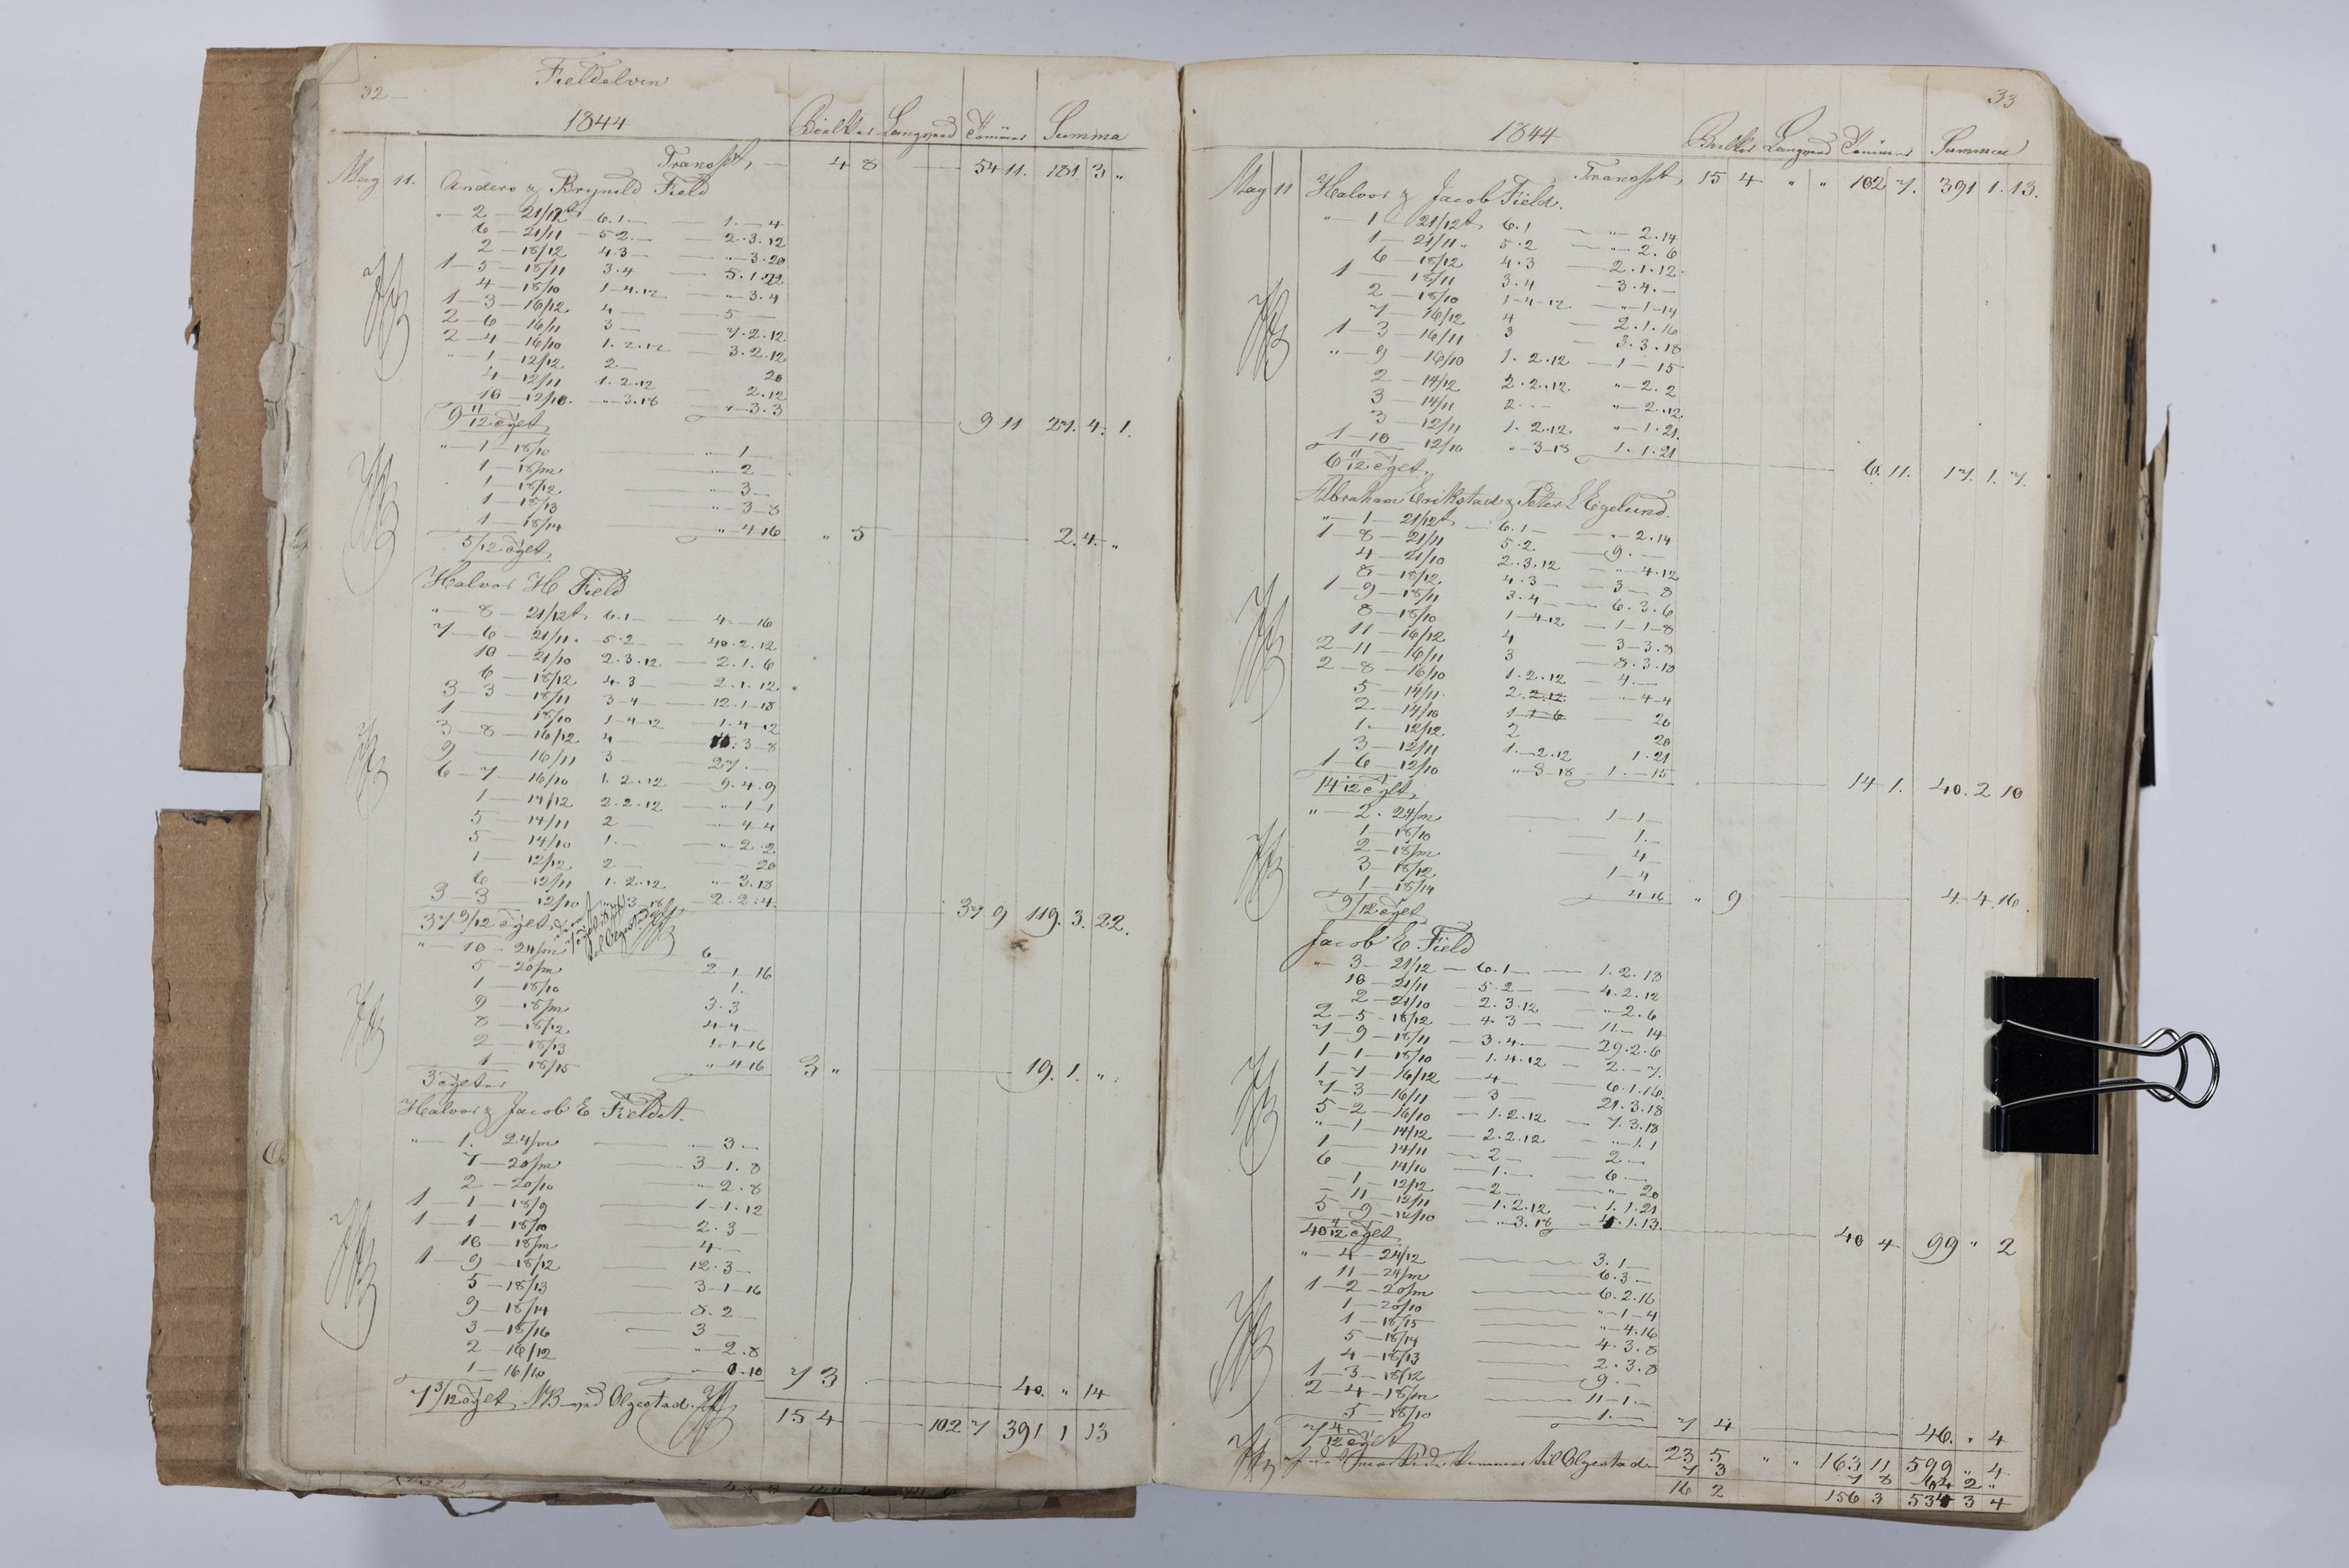 32
Fieldelven
1844 Bielker Langved Tømmer Summa
Transpt, — 4 8 — 54 11. 181 3 "
May 11. Anders & Bryneld Field
"— 2 — 21/12t 6.1 — 1.—4
6 — 21/11 — 5 2.— — 2.3.12
2 — 18/12 4.3 — "—3.20
1—5 — 18/11 3.4 — 5.1.22
4 — 18/10 1—4.12 — "—3.4
1—3 — 16/12 4 — 5 —
2—6 — 16/11 3 — 7.2.12
2—4 — 16/10 1.2.12 — 3.2.12
"—1 — 12/12 2 — 20
4 — 12/11 1.2.12 2.12
10 — 12/10. "—3.18 "—3.3
9 11/12 ćylt, — 9 11 27. 4. 1.
"—1—18/10 "—1—
1—18/m "—2—
1—18/12 "—3—
1—18/13 "—3—8
1—18/14 "—4—16
5/12 ćylt, " 5 — 2.4.—"
Halvor H Field
"—8 — 21/12t, 6.1— 4.—16
7—6 — 21/11. 5.2 — 40.2.12
10 — 21/10 2.3.12 — 2.1.6
6 — 18/12 4.3 — 2.1.12.
3—3 — 18/11 3—4 — 12.1—18
1 — 18/10 1—4—12 — 1.4—12
3—8 — 16/12 4 — 15.3—8
9 — 16/11 3 — 27.—
6—7 — 16/10 1.2.12 — 9.4.9
1 — 14/12 2.2.12 — "—1—1
5 — 14/11 2 — "—4—4
5 — 14/10 1.— "—2.2
1 — 12/12 2— — 20
6 — 12/11 1.2.12 "—3.18
3—3 12/10 "—3—18 — 2.2.4.
37 9/12 ćylt, til Olgestad 37 9 119. 3. 22.
"—10 — 24/m 6
5 — 20/m 2—1—16
1 — 18/10 1.
9 — 18/m 3.3
8 — 18/12 4—4—
2 — 18/13 1—1—16
1 — 18/15 "—4—16
3 ćylter 3 " — 19. 1. "
Halvor & Jacob E Fieldet.
"—1. 24/m — "—3—
7 — 20/m — 3—1.8
2 — 20/10 "—2.8
1—1—18/9 — 1—1.12
1—1—18/10 — 2.3—
10—18/m — 4.—
1—9—18/12 — 12.3—
5—18/13 — 3—1—16
9—18/14 — 8.2—
3—18/16 — 3—
2—16/12 — "—2.8
1—16/10 — 0.10
7 3/12 ćylt, NB ved Olgestad. 7 3 — 40. " 14
15 4 — 102 7 391 1 13
33
1844 Bielker Langved Tømmer Summa
Transpt, 15 4 " " 102 7. 391 1. 13.
May 11 Halvor & Jacob Field.
"—1 — 21/12t, 6.1 — "—2.14
1 — 21/11. 5.2 — "—2.6
6 — 18/12 4.3 — 2.1.12.
1 — 18/11 3.4 — 3.4.—
2 — 18/10 1—4—12 — "—1—14
7 — 16/12 4 — 2.1.16
1—3 — 16/11 3 — 3.3.18
"—9 — 16/10 1.2.12 — 1—15
2 — 14/12 2.2.12. "—2.2
3 — 14/11 2.— "—2.12
3 — 12/11 1.2.12. "—1.21.
1—10 — 12/10 "—3—18 1.1.21
6 11/12 ćylt, — 6.11. 17. 1. 7.
Abraham Erikstad & Peter L Egelund.
"—1—21/12t, — 6.1 — "—2.14
1—8—21/11 5.2 — 9.—
4—21/10 2.3.12 "—4.12
8—18/12 4.3 — 3—8
1—9—18/11 3.4 — 6.3.6
8—18/10 1—4—12 — 1—1—8
11—16/12 4 — 3—3.8
2—11—16/11 3 — 8.3.18
2—8—16/10 1.2.12 — 4.—
5—14/11. 2.2.12 "—4—4
2—14/10 1 1 6 20
1.—12/12 2 20
3—12/11 1.—2.12 1.21
1—6—12/10 "—3—18 — 1.—15
14 1/12 ćylt, — 14 1. 40. 2 10
"—2. 24/m — 1—1—
1—18/10 — 1.—
2—18/m — 4—
3—18/12 1—4
1—18/14 4—16
9/12 ćylt, " 9 — 4. 4. 16.
Jacob E Field
"—3—21/12 — 6.1 — 1.2.18
10—21/11 — 5.2— — 4.2.12
2—21/10 — 2.3.12 "—2.6
2—5—18/12 — 4.3 — 11—14
7—9—18/11 — 3.4.— 29.2.6
1—1—18/10 — 1.4.12 — 2.—7.
1—7—16/12 — 4— 6.1.16.
7—3—16/11 — 3— 21.3.18
5—2—16/10 — 1.2.12 — 7.3.18
"—1—14/12 — 2.2.12 — "—1.1
1— 14/11 — 2— — 2.—
6 14/10 — 1.— — 6.—
—1—12/12 — 2— "—20
—11—12/11 — 1.2.12 — 1.1.21
5—9—12/10 — "—3.18 — 4.1.13.
40 4/12 ćylt, — 40 4 99 " 2
"—4—24/12 — 3.1—
11—24/m — 6.3—
1—2—20/m — 6.2.16
1—20/10 — "—1—4
1—18/15 — "—4.16
5—18/14 — 4.3.8
4—18/13 — 2.3.8
1—3—18/12 — 9.—
2—4—18/m — 11—1.—
5—18/10 — 1.—
7 4/12 ćylt 7 4 — 46. " 4
Tømmer til Olgestad 23 5 " " 163 11 599 " 4
7 3 7 8 64 2 "
16 2 156 3 534 3 4